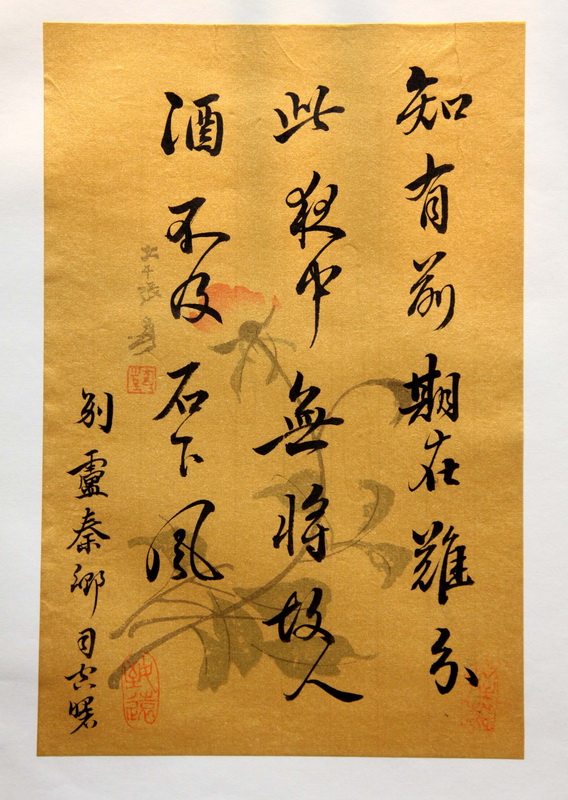 知有前期在難分
此夜中無將故人
酒不及石下風
别盧秦卿司空曙
大千張爰